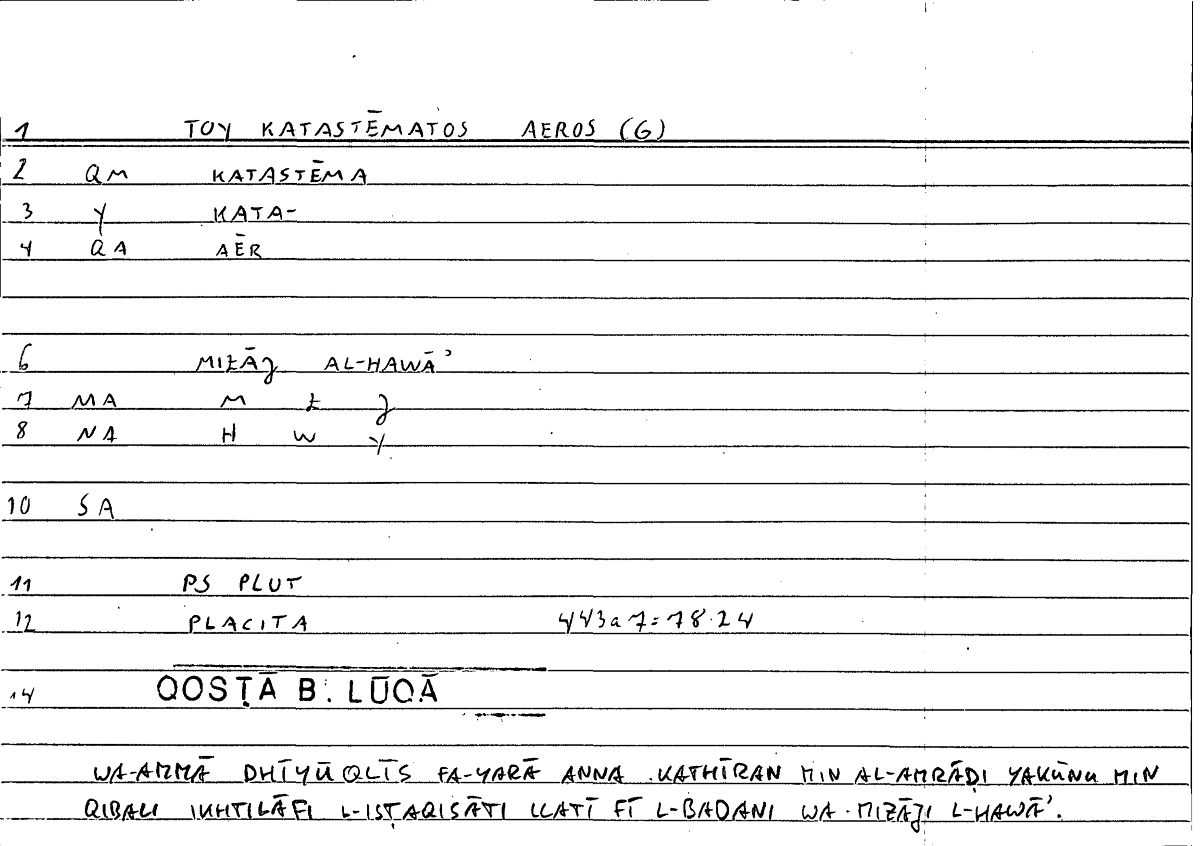 1 TOY KATASTĒMATOS AEROS (G)
2 QM KATASTĒMA
3 Y KATA-
4 QA AĒR
6 MIZĀJ AL-HAWĀʾ
7 MA M Z J
8 NA H W Y
10 SA
11 PS PLUT
12 PLACITA 443a7=78.24
14 QOSṬĀ B. LŪQĀ
WA-AMMĀ DHĪYŪQLĪS FA-YARĀ ANNA KATHĪRAN MIN AL-AMRĀḌI YAKŪNU MIN
QIBALI IKHTILĀFI L-ISṬAQISĀTI LLATĪ FĪ L-BADANI WA-MIZĀJI L-HAWĀʾ.